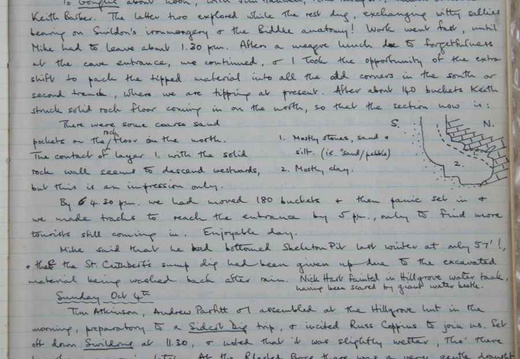 to Gonflee about noon, with
Keith Barber. The latter two explored while the rest dug, exchanging witty sallies
bearing on Swildon's ironmongery & the Riddle anatomy! Work went fast, until
Mike had to leave about 1.30 pm. After a meagre lunch due to forgetfulness
at the cave entrance, we continued, & I took the opportunity of the extra
shift to pack the tipped material into all the odd corners in the south or
second trench, where we are tipping at present. After about 140 buckets Keith
struck solid rock floor coming in on the north, so that the section now is:
There were some coarse sand
pockets on the rock floor on the north.
The contact of layer 1 with the solid
rock wall seems to descend westwards,
but this is an impression only.
1. Mostly stones, sand &
silt. (ie. Sand/pebble)
2. Mostly clay.
S. N.
2.
By 4.30 pm. we had moved 180 buckets & then panic set in &
we made tracks to reach the entrance by 5 pm., only to find more
tourists still coming in. Enjoyable day.
Mike said that he had bottomed Skeleton Pit last winter at only 57'!,
& that the St. Cuthbert's sump dig had been given up due to the excavated
material being washed back after rain. Nick Hart fainted in Hillgrove water tank,
having been scared by giant water beetle.
Sunday Oct 4th
Tim Atkinson, Andrew Parfitt & I assembled at the Hillgrove hut in the
morning, preparatory to a Sidcot Dig trip, & incited Russ Coppus to join us. Set
off down Swildons at 11.30, & noted that it was slightly wetter, tho' there